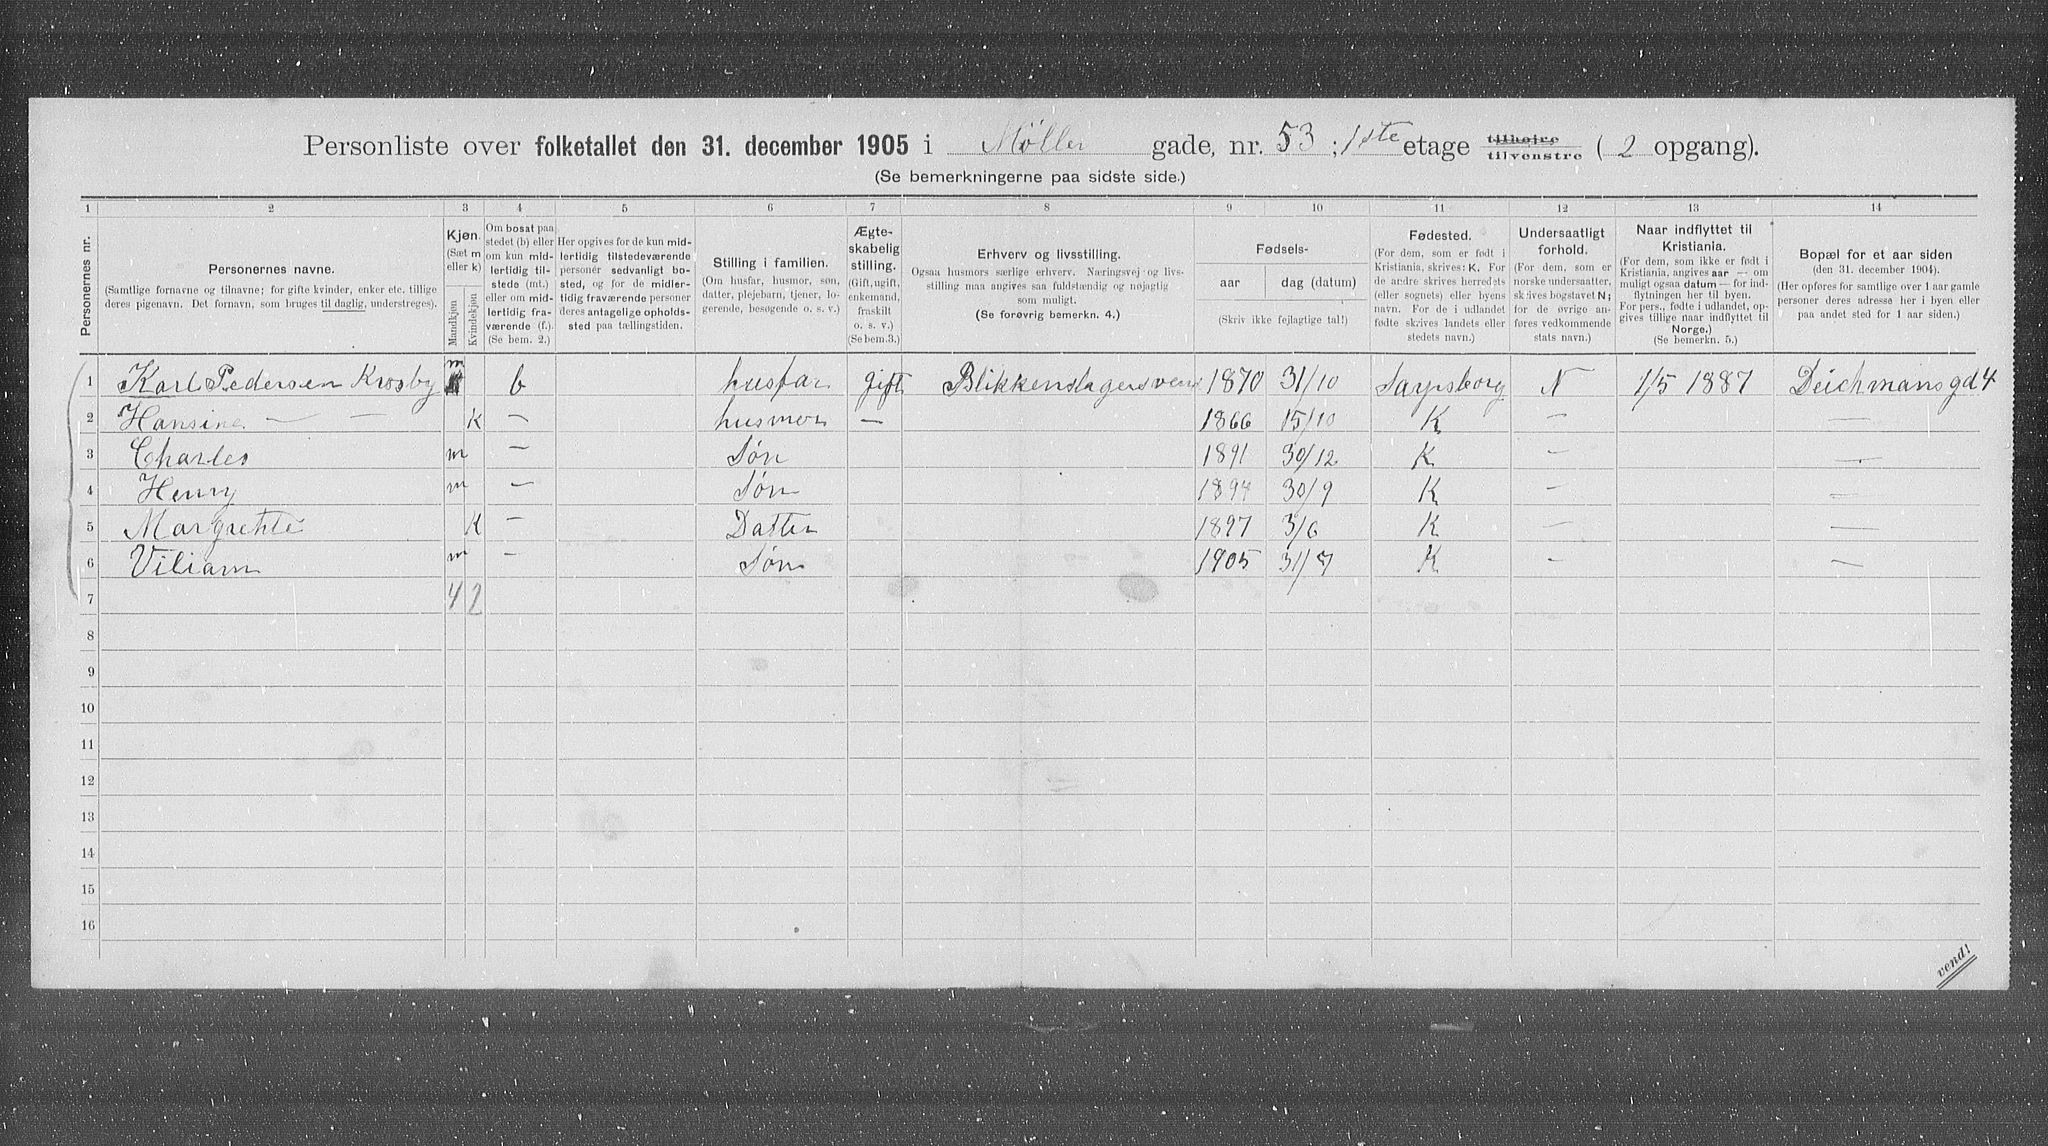 Personliste over folketallet den 31. december 1905 i Møller gade, nr. 53 ; 1ste etage tilhøjre tilvenstre ( 2 opgang).
(Se bemerkningerne paa sidste side.)
1 2 3 4 5 6 7 8 9 10 11 12 13 14
Personernes nr.
Personernes navne.
(Samtlige fornavne og tilnavne; for gifte kvinder, enker etc. tillige
deres pigenavn. Det fornavn, som bruges til daglig, understreges).
Kjøn.
(Sæt m
eller k)
Mandkjøn
Kvindekjøn
Om bosat paa
stedet (b) eller
om kun mid-
lertidig til-
stede (mt.)
eller om mid-
lertidig fra-
værende (f.).
(Se bem. 2.)
Her opgives for de kun mid-
lertidig tilstedeværende
personer sedvanligt bo-
sted, og for de midler-
tidig fraværende personer
deres antagelige opholds-
sted paa tællingstiden.
Stilling i familien.
(Om husfar, husmor, søn,
datter, plejebarn, tjener, lo-
gerende, besøgende o. s. v.)
Ægte-
skabelig
stilling.
(Gift, ugift,
enkemand,
fraskilt
o. s. v.)
(Se bem. 3.)
Erhverv og livsstilling.
Ogsaa husmors særlige erhverv. Næringsvej og livs-
stilling maa angives saa fuldstændig og nøjagtig
som muligt.
(Se forøvrig bemerkn. 4.)
Fødsels-
aar dag (datum)
(Skriv ikke fejlagtige tal!)
Fødested.
(For dem, som er født i
Kristiania, skrives: K. For
de andre skrives herredets
(eller sognets) eller byens
navn. For de i udlandet
fødte skrives landets eller
stedets navn.)
Undersaatligt
forhold.
(For dem, som er
norske undersaatter,
skrives bogstavet N;
for de øvrige an-
føres vedkommende
stats navn.)
Naar indflyttet til
Kristiania.
(For dem, som ikke er født i
Kristiania, angives aar — om
muligt ogsaa datum — for ind-
flytningen her til byen.
For pers. fødte i udlandet, op-
gives tillige naar indflyttet til
Norge.)
(Se bemerkn. 5.)
Bopæl for et aar siden
(den 31. december 1904).
(Her opføres for samtlige over 1 aar gamle
personer deres adresse her i byen eller
paa andet sted for 1 aar siden.)
1 Karl Pedersen Krosby m b husfar gift Blikkenslagersvend 1870 31/10 Sarpsborg N 1/5 1887 Deichmansgd 4
2 Hansine — — K — husmor — 1866 15/10 K — —
3 Charles m — Søn 1891 30/12 K — —
4 Henry m — Søn 1894 30/9 K — —
5 Margrethe K — Datter 1897 3/6 K — —
6 Viliam m — Søn 1905 31/7 K — —
7 4 2
8
9
10
11
12
13
14
15
16
vend!